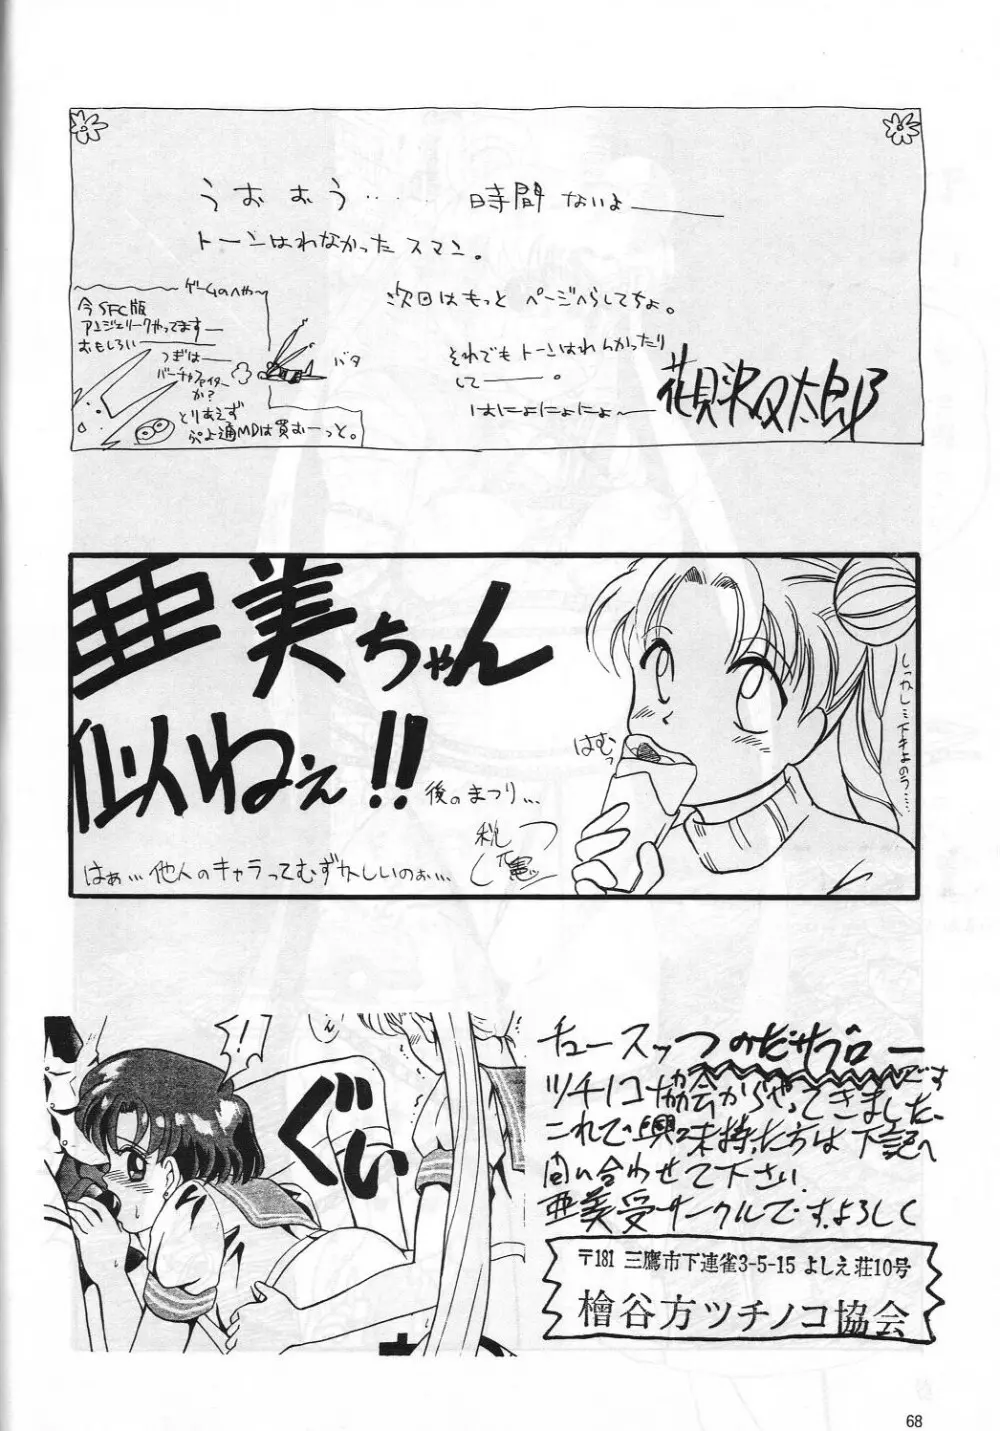 うおおう‥‥ 時間ないよ――
トーンはれなかったスマン。
次回はもっとページへらしてちょ。
それでもトーンはれんかったり
して――。
はにょにょにょ～
ゲームのへや～
今SFC版
アンジェリークやってます―
おもしろい――
つぎは―
バーチャファイター
か?
とりあえず
ぷよ通MDは買おーっと。
バタ
亜美ちゃん
似ねぇ!!
後のまつり…
はぁ…他人のキャラってむずかしいのぉ…
はむっ
しっかし…下きものう……
!?
ぐい
チュースッつのだサブローです
ツチノコ協会からやってきました、
これで興味持った方は下記へ
問い合わせて下さい
亜美受サークルです。よろしく
〒181 三鷹市下連雀3-5-15 よしえ荘10号
檜谷方ツチノコ協会
68